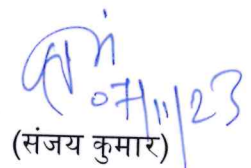 07/11/23
(संजय कुमार)